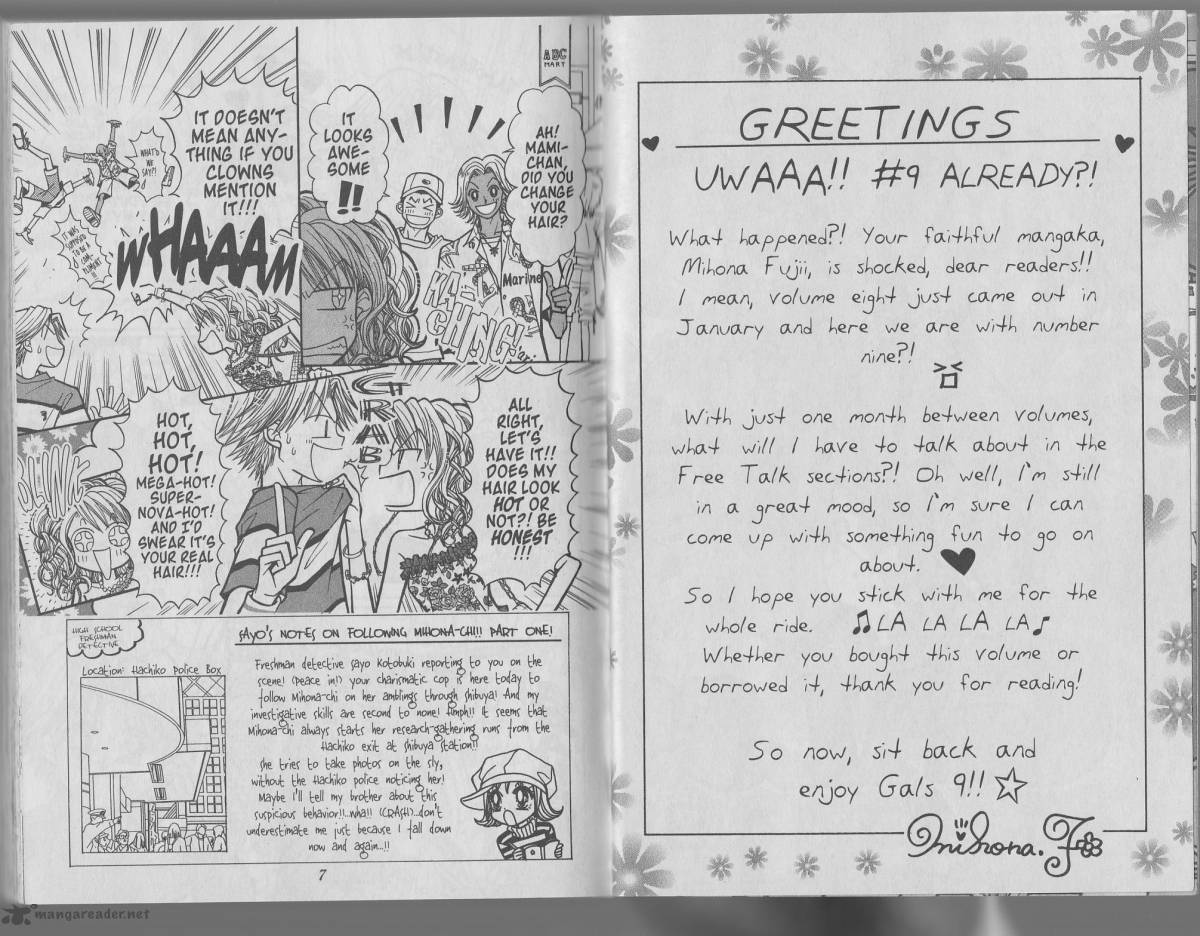 GREETINGS
UWAAA!! #9 ALREADY?!
What happened?! Your faithful mangaka,
Mihona Fujii, is shocked, dear readers!!
I mean, volume eight just came out in
January and here we are with number
nine?!
With just one month between volumes,
what will I have to talk about in the
Free Talk sections?! Oh well, I'm still
in a great mood, so I'm sure I can
come up with something fun to go on
about. ♥
So I hope you stick with me for the
whole ride. ♫ LA LA LA LA ♪
Whether you bought this volume or
borrowed it, thank you for reading!
So now, sit back and
enjoy Gals 9!! ☆
Mihona. F
ABC
MART
AH!
MAMI-
CHAN,
DID YOU
CHANGE
YOUR
HAIR?
IT
LOOKS
AWE-
SOME
!!
Marine
KA-
CHING!
IT DOESN'T
MEAN ANY-
THING IF YOU
CLOWNS
MENTION
IT!!!
WHAAAM
WHAT'D
WE
SAY?!
IT WAS
SUPPOSED
TO BE A
COM-
PLIMENT
3
ALL
RIGHT,
LET'S
HAVE IT!!
DOES MY
HAIR LOOK
HOT OR
NOT?! BE
HONEST
!!!
GRAB
HOT,
HOT,
HOT!
MEGA-HOT!
SUPER-
NOVA-HOT!
AND I'D
SWEAR IT'S
YOUR REAL
HAIR!!!
HIGH SCHOOL
FRESHMAN
DETECTIVE
SAYO'S NOTES ON FOLLOWING MIHONA-CHI!! PART ONE!
Location: Hachiko Police Box
Freshman detective Sayo Kotobuki reporting to you on the
scene! (Peace in!) Your charismatic cop is here today to
follow Mihona-chi on her amblings through Shibuya! And my
investigative skills are second to none! Hmph!! It seems that
Mihona-chi always starts her research-gathering runs from the
Hachiko exit at Shibuya Station!!
She tries to take photos on the sly,
without the Hachiko police noticing her!
Maybe I'll tell my brother about this
suspicious behavior!!..Wha!! (CRASH)...don't
underestimate me just because I fall down
now and again...!!
7
mangareader.net